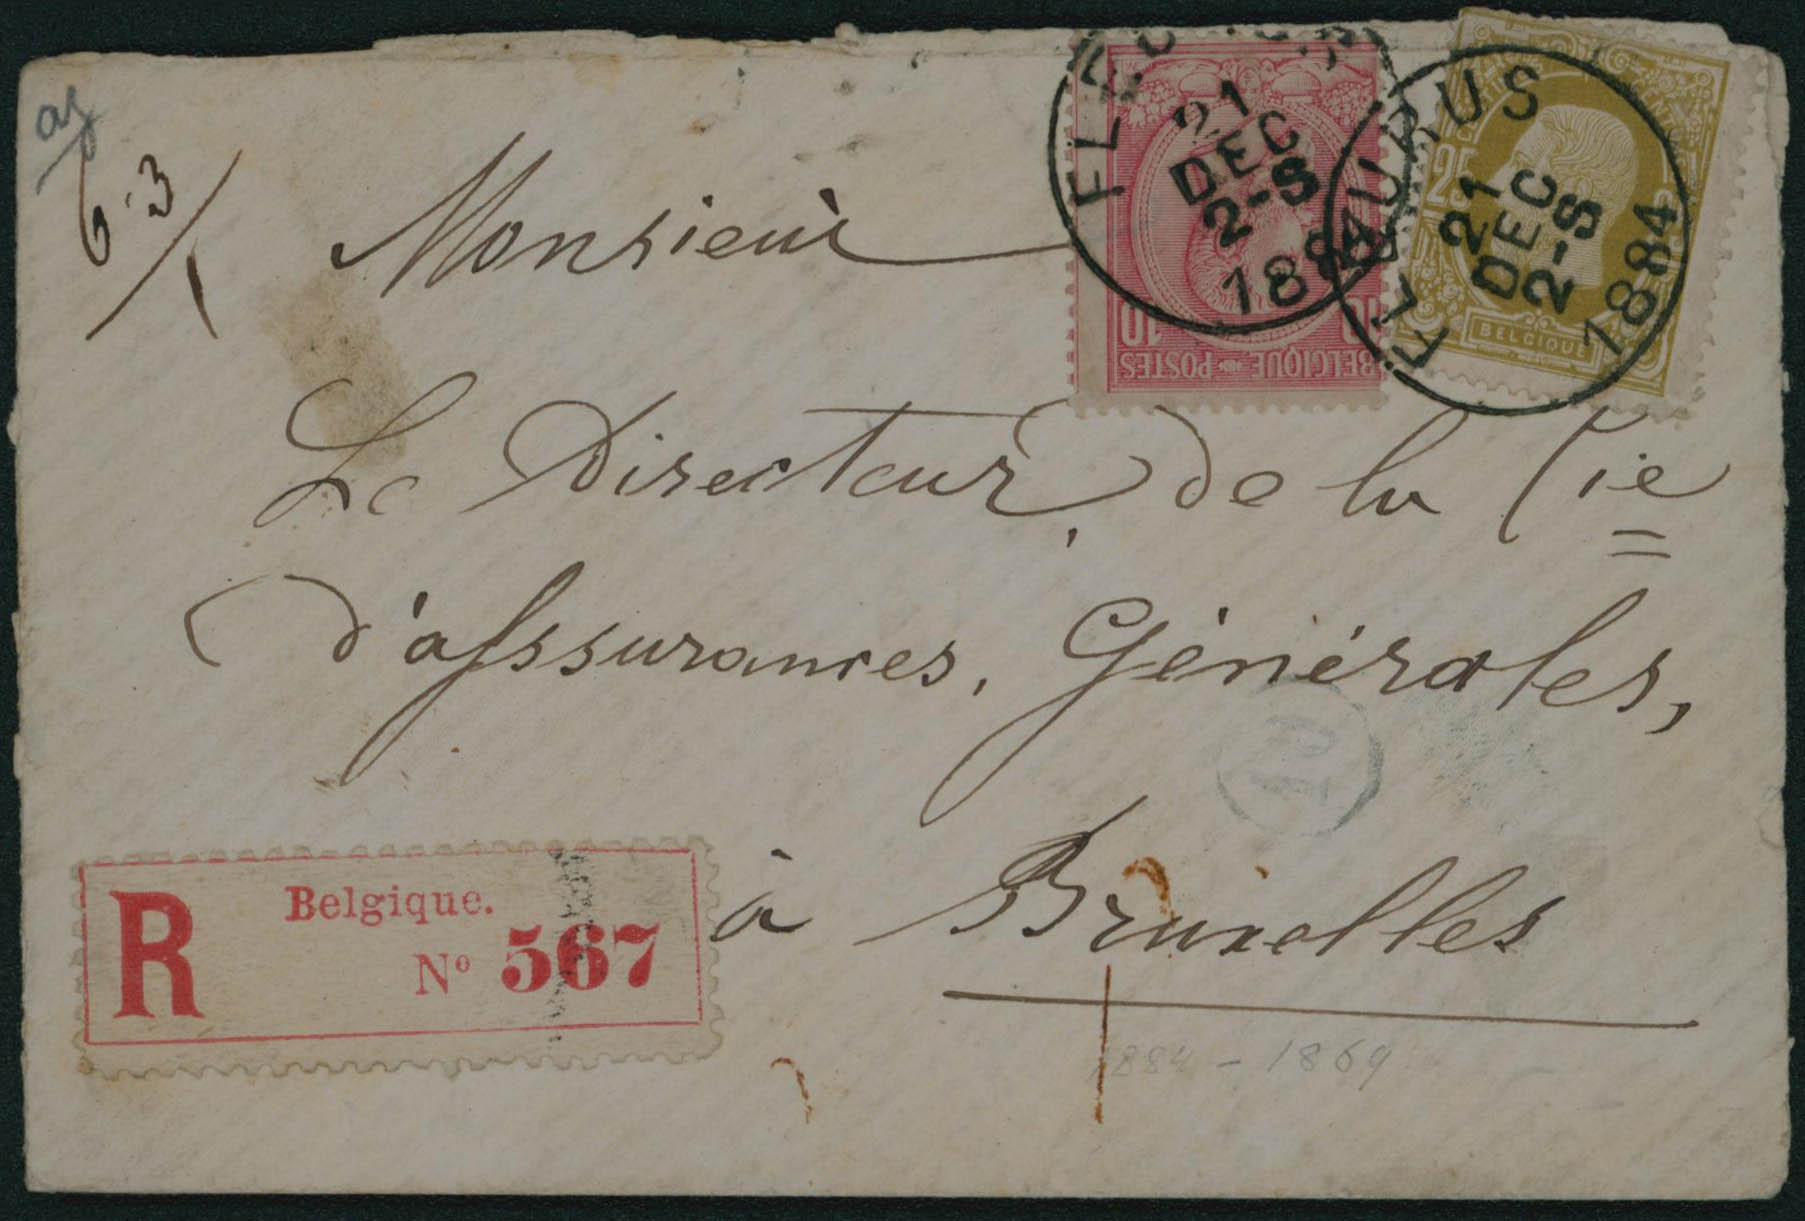 6-3/1
Monsieur
Le Directeur, de la Cie
d'assurances, Générales,
à Bruxelles
R Belgique.
Nº 567
FLEURUS
21
DEC
2-S
1884
FLEURUS
21
DEC
2-S
1884
10 10
BELGIQUE POSTES
25
BELGIQUE
10
1884 - 1869